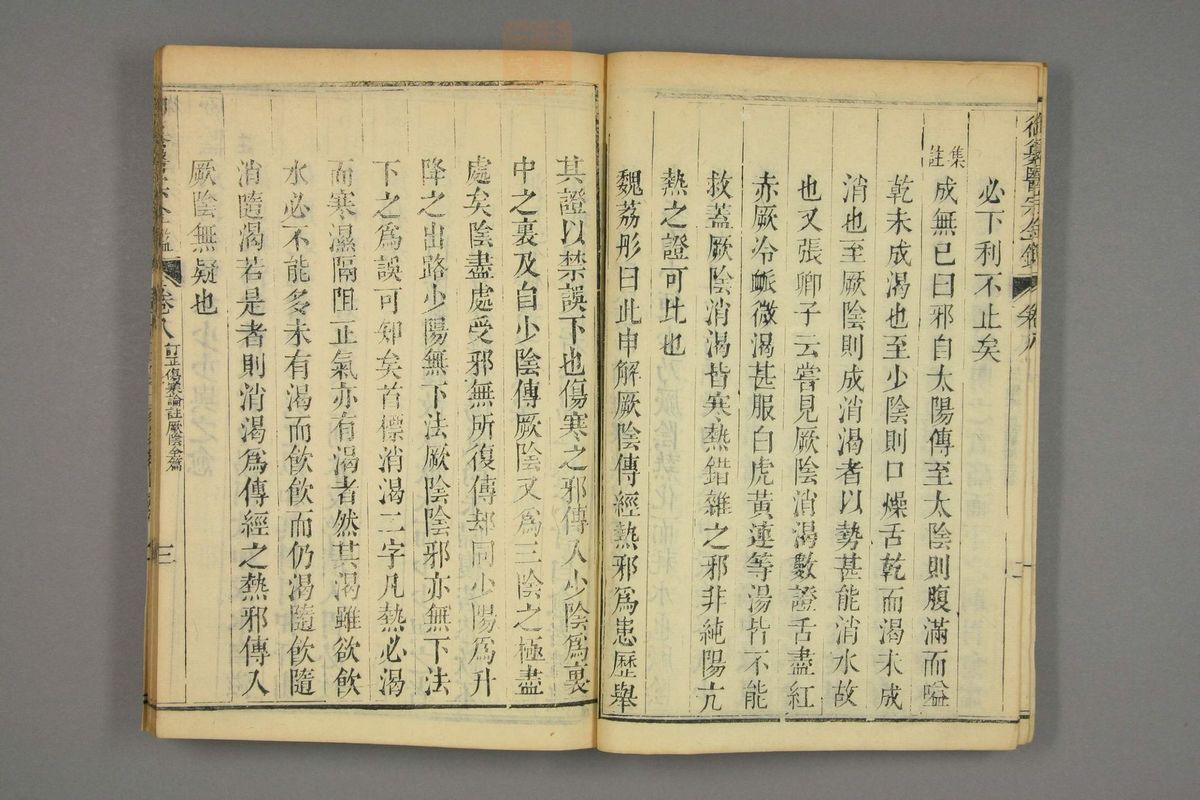 御纂醫宗金鑑 卷八
必下利不止矣
集註
成無已曰邪自太陽傳至太陰則腹滿而嗌
乾未成渴也至少陰則口燥舌乾而渴未成
消也至厥陰則成消渴者以勢甚能消水故
也又張卿子云嘗見厥陰消渴數證舌盡紅
赤厥冷衇微渴甚服白虎黃連等湯皆不能
救蓋厥陰消渴皆寒熱錯雜之邪非純陽亢
熱之證可比也
魏荔彤曰此申解厥陰傳經熱邪爲患歷舉
其證以禁誤下也傷寒之邪傳入少陰爲裏
中之裏及自少陰傳厥陰又爲三陰之極盡
處矣陰盡處受邪無所復傳却同少陽爲升
降之出路少陽無下法厥陰陰邪亦無下法
下之爲誤可知矣首標消渴二字凡熱必渴
而寒濕隔阻正氣亦有渴者然其渴雖欲飲
水必不能多未有渴而飲飲而仍渴隨飲隨
消隨渴若是者則消渴爲傳經之熱邪傳入
厥陰無疑也
卷八 訂正傷寒論註厥陰全篇 三